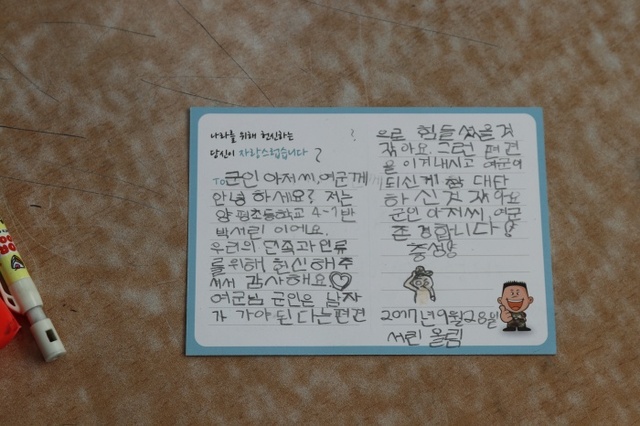 나라를 위해 헌신하는
당신이 자랑스럽습니다
To군인 아저씨, 여군께
안녕하세요? 저는
양평초등학교 4-1반
박서린 이에요.
우리의 민족과 인류
를 위해 헌신해주
셔서 감사해요♡
여군님 군인은 남자
가 가야 된다는 편견
으로 힘들셨을 것
같아요. 그런 편견
을 이겨내시고 여군이
되신게 참 대단
하신것 같아요
군인 아저씨, 여군
존경합니다!
충성!
2017년 9월 28일
서린 올림